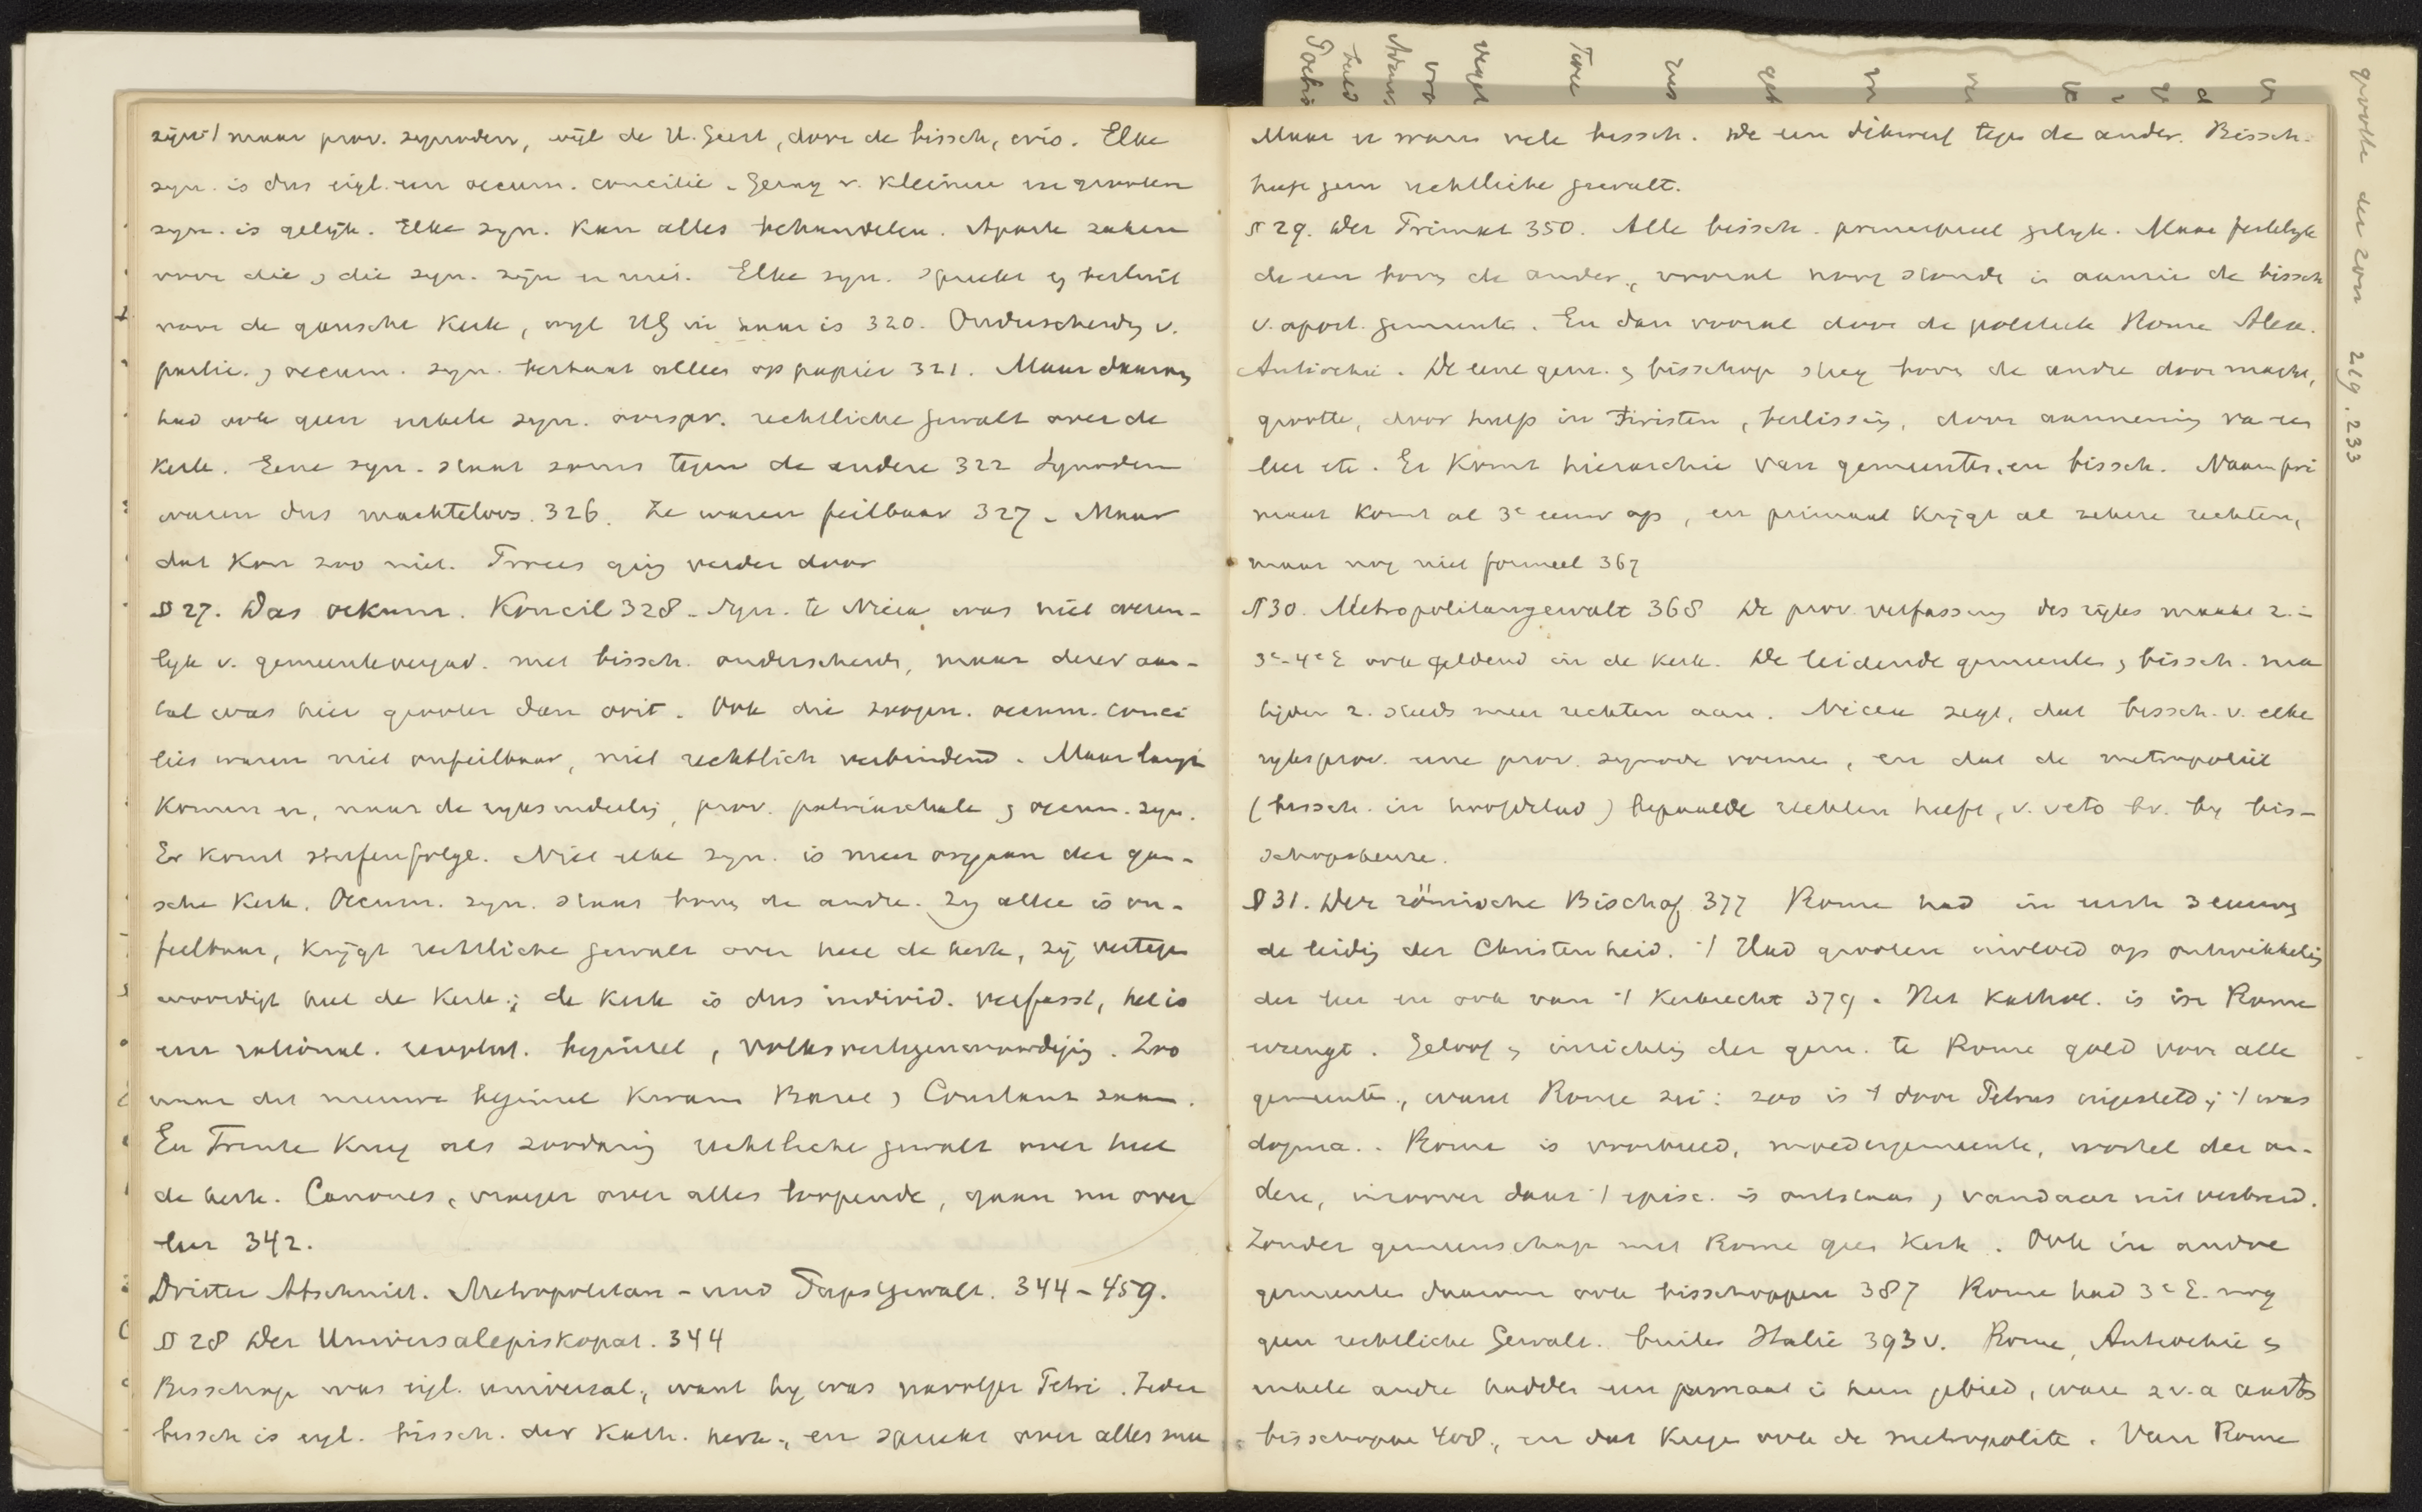 zijn 't maar prov. synoden, wijl de H. Geest, door de bissch, er is. Elke
syn. is dus eigl. een oecum. concilie. Gezag v. kleinere en grootere
syn. is gelijk. Elke syn. kan alles behandelen. Aparte zaken
voor die, die syn. zijn er niet. Elke syn. spreekt en besluit
voor de gansche Kerk, wyl HG in haar is 320. Onderscheidg v.
partic. , oecum. syn. bestaat alleen op papier 321. Maar daarom
had ook geen enkele syn. oorspr. rechtliche gewalt over de
Kerk. Eene syn. staat soms tegen de andere 322 Synoden
waren dus machteloos. 326. Ze waren feilbaar 327. Maar
dat kon zoo niet. Proces ging verder door
§ 27. Das oekum. Koncil 328. Syn. te Nicea was niet wezen-
lyk v. gemeentevergad. met bissch. onderscheiden, maar derer aan-
tal was hier grooter dan ooit. Ook die zoogen. oecum. conci
lies waren niet onfeilbaar, niet rechtlich verbindend. Maar langz
komen er, naar de ryksindeeling, prov. patriarchale , oecum. syn.
Er komt stufenfolge. Niet elke syn. is meer orgaan der gan-
sche Kerk. Oecum. syn. staat boven de andre. Zy alleen is on-
feilbaar, krijgt rechtliche gewalt over heel de kerk, zij vertegen
woordigt heel de Kerk; de Kerk is dus individ. verfasst, het is
een rational. revolut. beginsel, volksvertegenwoordiging. Zoo
naar dit nieuwe beginsel kwam Bazel , Constanz saam.
En Trente kreeg als zoodanig rechtliche gewalt over heel
de kerk. Canones, vroeger over alles loopende, gaan nu over
leer 342.
Dritter Abschnitt. Metropolitan- und Papstgewalt. 344-459.
§ 28 Der Universalepiskopat. 344
Bisschop was eigl. universal., want hy was navolger Petri. Ieder
bissch is eigl. bissch. der Kath. kerk., en spreekt over alles mee
Maar er waren vele bissch. De een dikwerf tegen de ander. Bissch.
heeft geen rechtliche gewalt.
§ 29. Der Primat 350. Alle bissch. principieel gelyk. Maar feitelyk
de een boven de ander, vooral hoog stonden in aanzien de bissch
v. apost. gemeente. En dan vooral door de politiek Rome Alex.
Antiochie. De eene gem. , bisschop steeg boven de andre door macht,
grootte, door hulp in twisten, beslissing, door aanneming van een
leer etc. Er komt hierarchie van gemeenten en bissch. Naam pri
maat komt al 3e eeuw op, en primaat krijgt al zekere rechten,
maar nog niet formeel 367
§ 30. Metropolitangewalt 368 De prov. verfassung des ryks maakt z. in
3e-4e E ook geldend in de kerk. De leidende gemeenten , bissch. ma
tigden z. steeds meer rechten aan. Nicea zegt, dat bissch. v. elke
ryksprov. eene prov. synode vormen, en dat de metropoliet
(bissch. in hoofdstad) bepaalde rechten heeft, v. veto bv. by bis-
schopskeuze.
§ 31. Der römische Bischof 377 Rome had in eerste 3 eeuwen
de leiding der Christenheid. 't Had grooten invloed op ontwikkeling
der leer en ook van 't kerkrecht 379. Het Kathol. is in Rome
Geloof , inrichting der gem. te Rome gold voor alle
gemeenten, want Rome zei: zoo is 't door Petrus ingesteld; 't was
dogma.. Rome is voorbeeld, moedergemeente, wortel der an-
dere, inzoover daar 't episc. is ontstaan , vandaar uit verbreid.
Zonder gemeenschap met Rome geen Kerk. Ook in andre
gemeenten daarom ook bisschoppen 387 Rome had 3e E. nog
geen rechtliche Gewalt. buiten Italie 393 v. Rome, Antiochie ,
enkele andre hadden een primaat in hun gebied, waren z v. a aarts
bisschoppen 408., en dat kregen ook de metropoliten. Van Rome
grootte der zon 219. 233